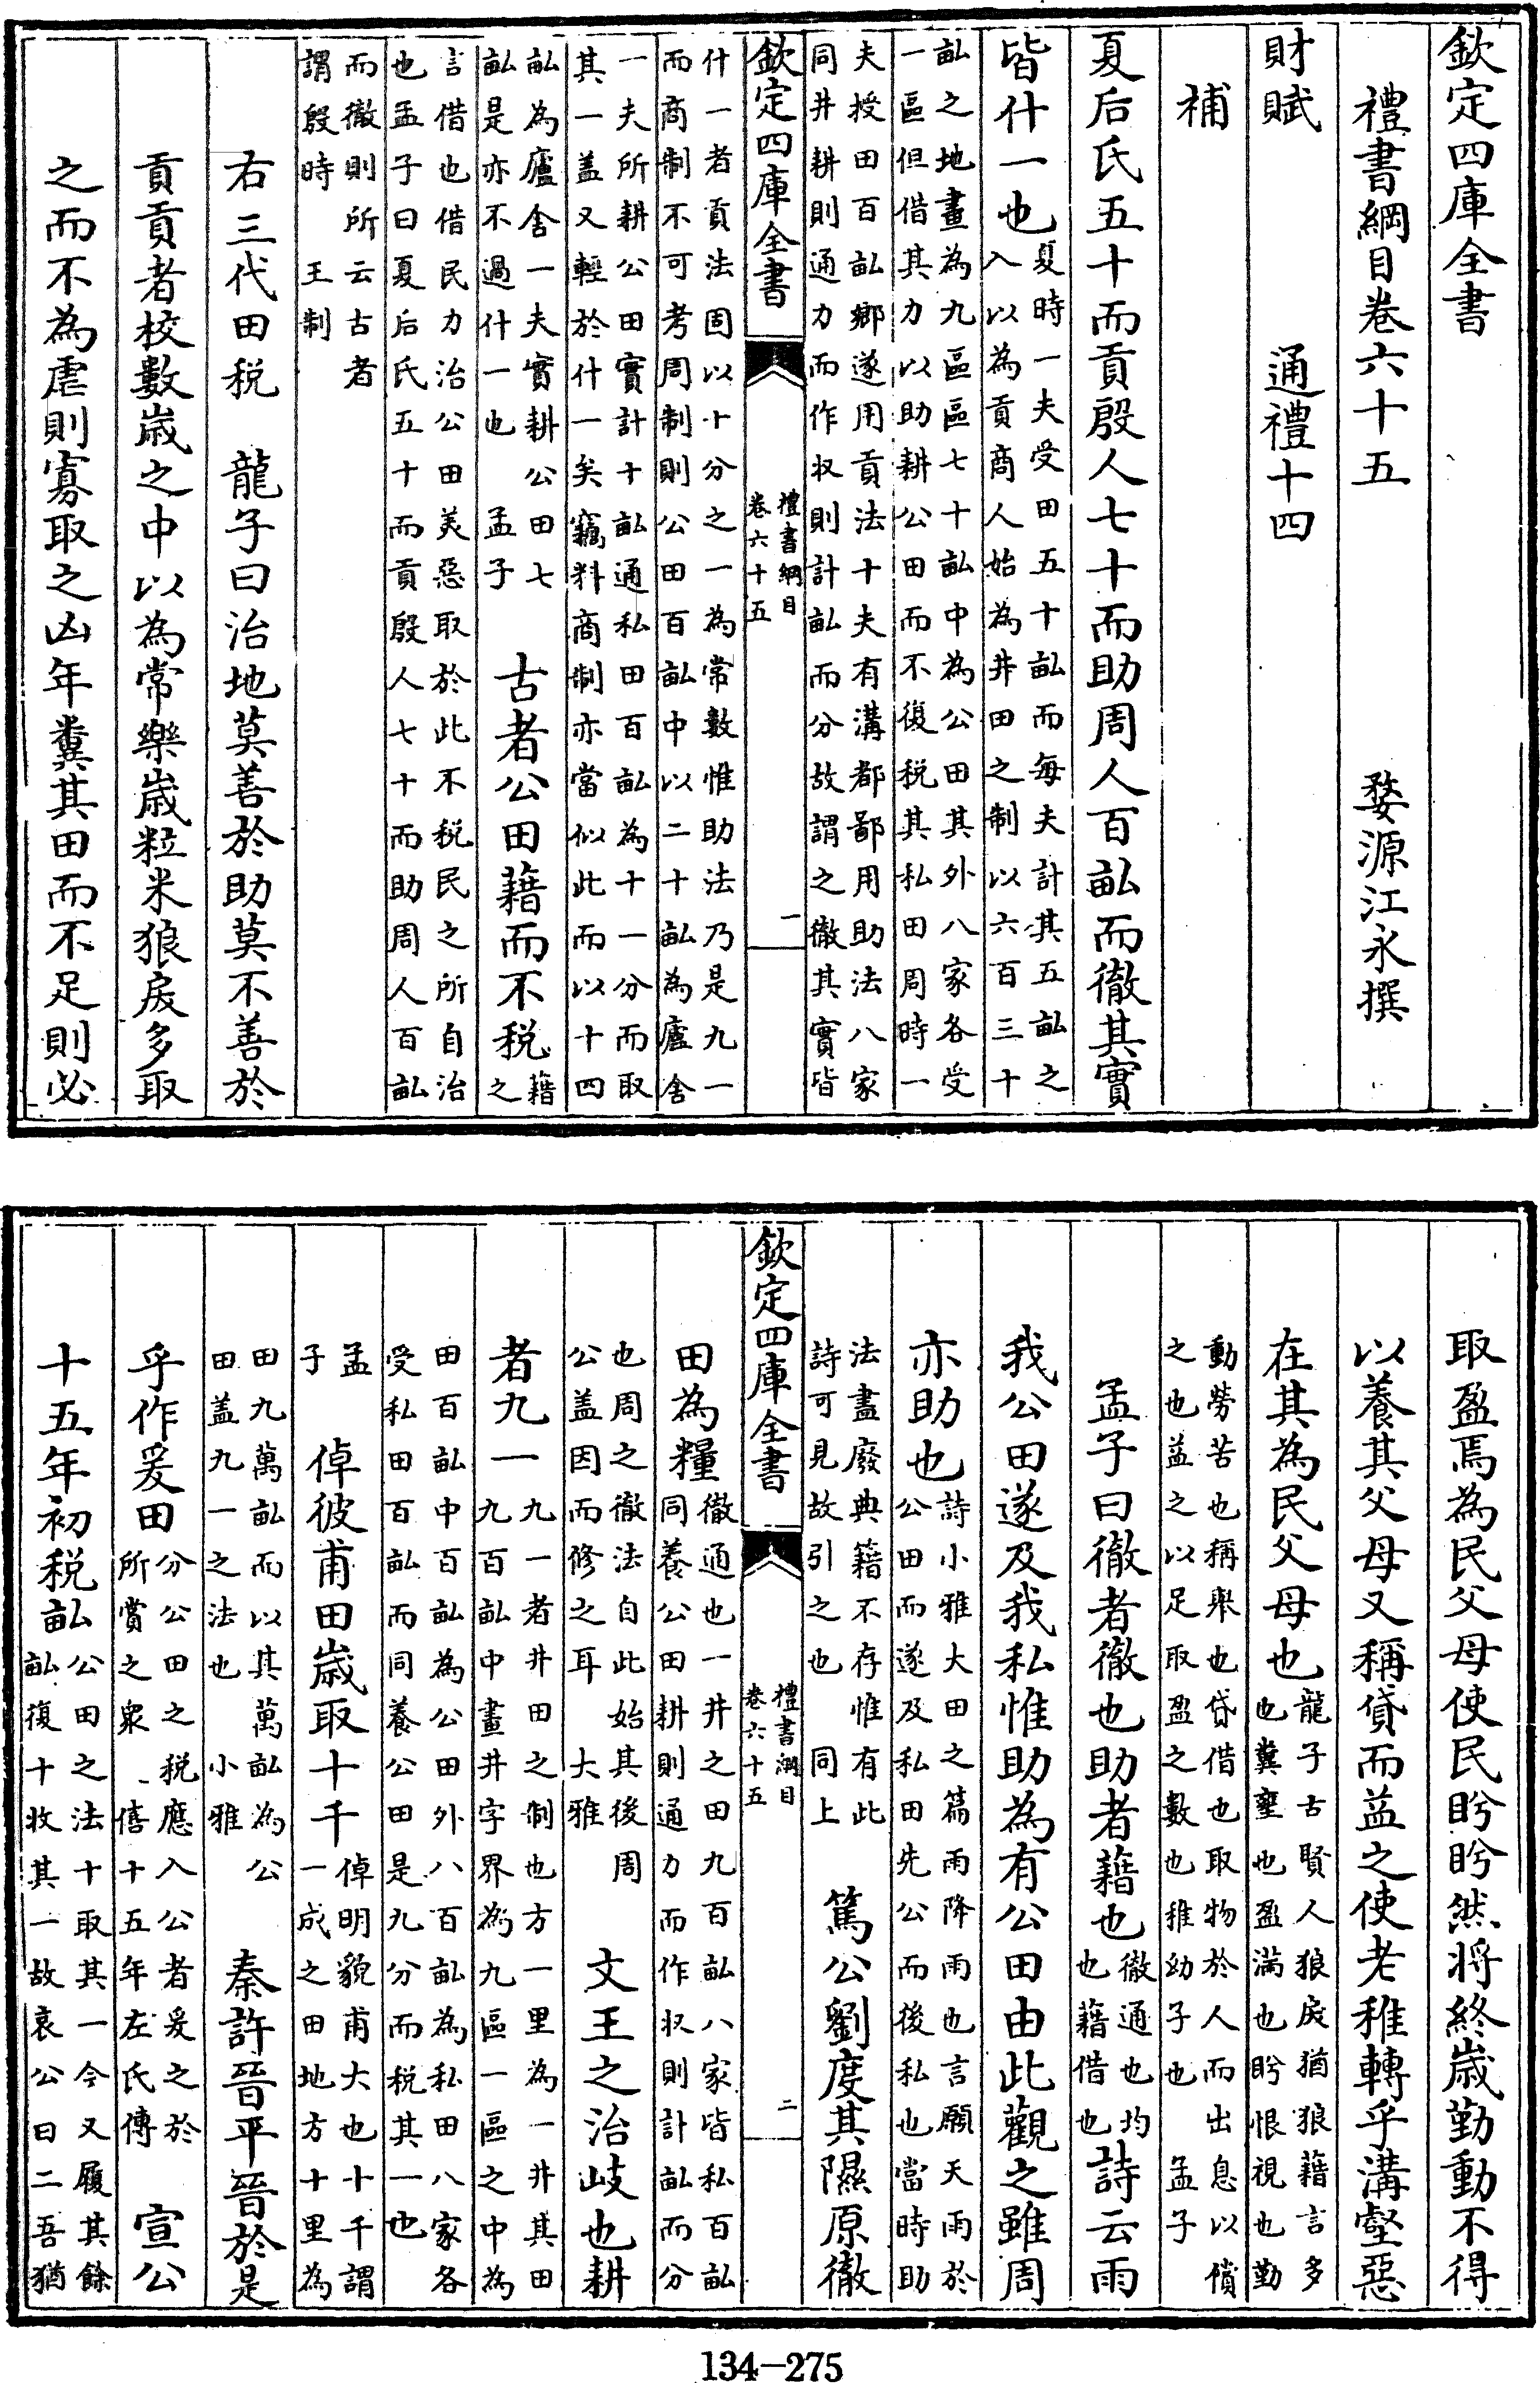 欽定四庫全書
禮書綱目卷六十五　婺源江永撰
財賦　通禮十四
補
夏后氏五十而貢殷人七十而助周人百畝而徹其實
皆什一也
夏時一夫受田五十畝而每夫計其五畝之
入以為貢商人始為井田之制以六百三十
畝之地畫為九區區七十畝中為公田其外八家各受
一區但借其力以助耕公田而不復税其私田周時一
夫授田百畝鄉遂用貢法十夫有溝都鄙用助法八家
同井耕則通力而作収則計畝而分故謂之徹其實皆
欽定四庫全書　禮書綱目卷六十五　一
什一者貢法固以十分之一為常數惟助法乃是九一
而商制不可考周制則公田百畝中以二十畝為廬舎
一夫所耕公田實計十畝通私田百畝為十一分而取
其一盖又輕於什一矣竊料商制亦當似此而以十四
畝為廬舎一夫實耕公田七
畝是亦不過什一也　孟子
古者公田藉而不税
藉之
言借也借民力治公田美惡取於此不税民之所自治
也孟子曰夏后氏五十而貢殷人七十而助周人百畝
而徹則所云古者
謂殷時　王制
右三代田税　龍子曰治地莫善於助莫不善於
貢貢者校數歳之中以為常樂歳粒米狼戾多取
之而不為虐則寡取之凶年糞其田而不足則必
取盈焉為民父母使民盻盻然將終歳勤動不得
以養其父母又稱貸而益之使老稚轉乎溝壑惡
在其為民父母也
龍子古賢人狼戾猶狼藉言多
也糞壅也盈滿也盻恨視也勤
動勞苦也稱舉也貸借也取物於人而出息以償
之也益之以足取盈之數也稚幼子也　孟子
孟子曰徹者徹也助者藉也
徹通也均
也藉借也
詩云雨
我公田遂及我私惟助為有公田由此觀之雖周
亦助也
詩小雅大田之篇雨降雨也言願天雨於
公田而遂及私田先公而後私也當時助
法盡廢典籍不存惟有此
詩可見故引之也　同上
篤公劉度其隰原徹
欽定四庫全書　禮書綱目卷六十五　二
田為糧
徹通也一井之田九百畝八家皆私百畝
同養公田耕則通力而作収則計畝而分
也周之徹法自此始其後周
公盖因而修之耳　大雅
文王之治岐也耕
者九一
九一者井田之制也方一里為一井其田
九百畝中畫井字界為九區一區之中為
田百畝中百畝為公田外八百畝為私田八家各
受私田百畝而同養公田是九分而税其一也
孟
子
倬彼甫田歳取十千
倬明貌甫大也十千謂
一成之田地方十里為
田九萬畝而以其萬畝為公
田盖九一之法也　小雅
秦許晉平晉於是
乎作爰田
分公田之税應入公者爰之於
所賞之衆　僖十五年左氏傳
宣公
十五年初税畝
公田之法十取其一今又履其餘
畝復十收其一故哀公曰二吾猶
134-275